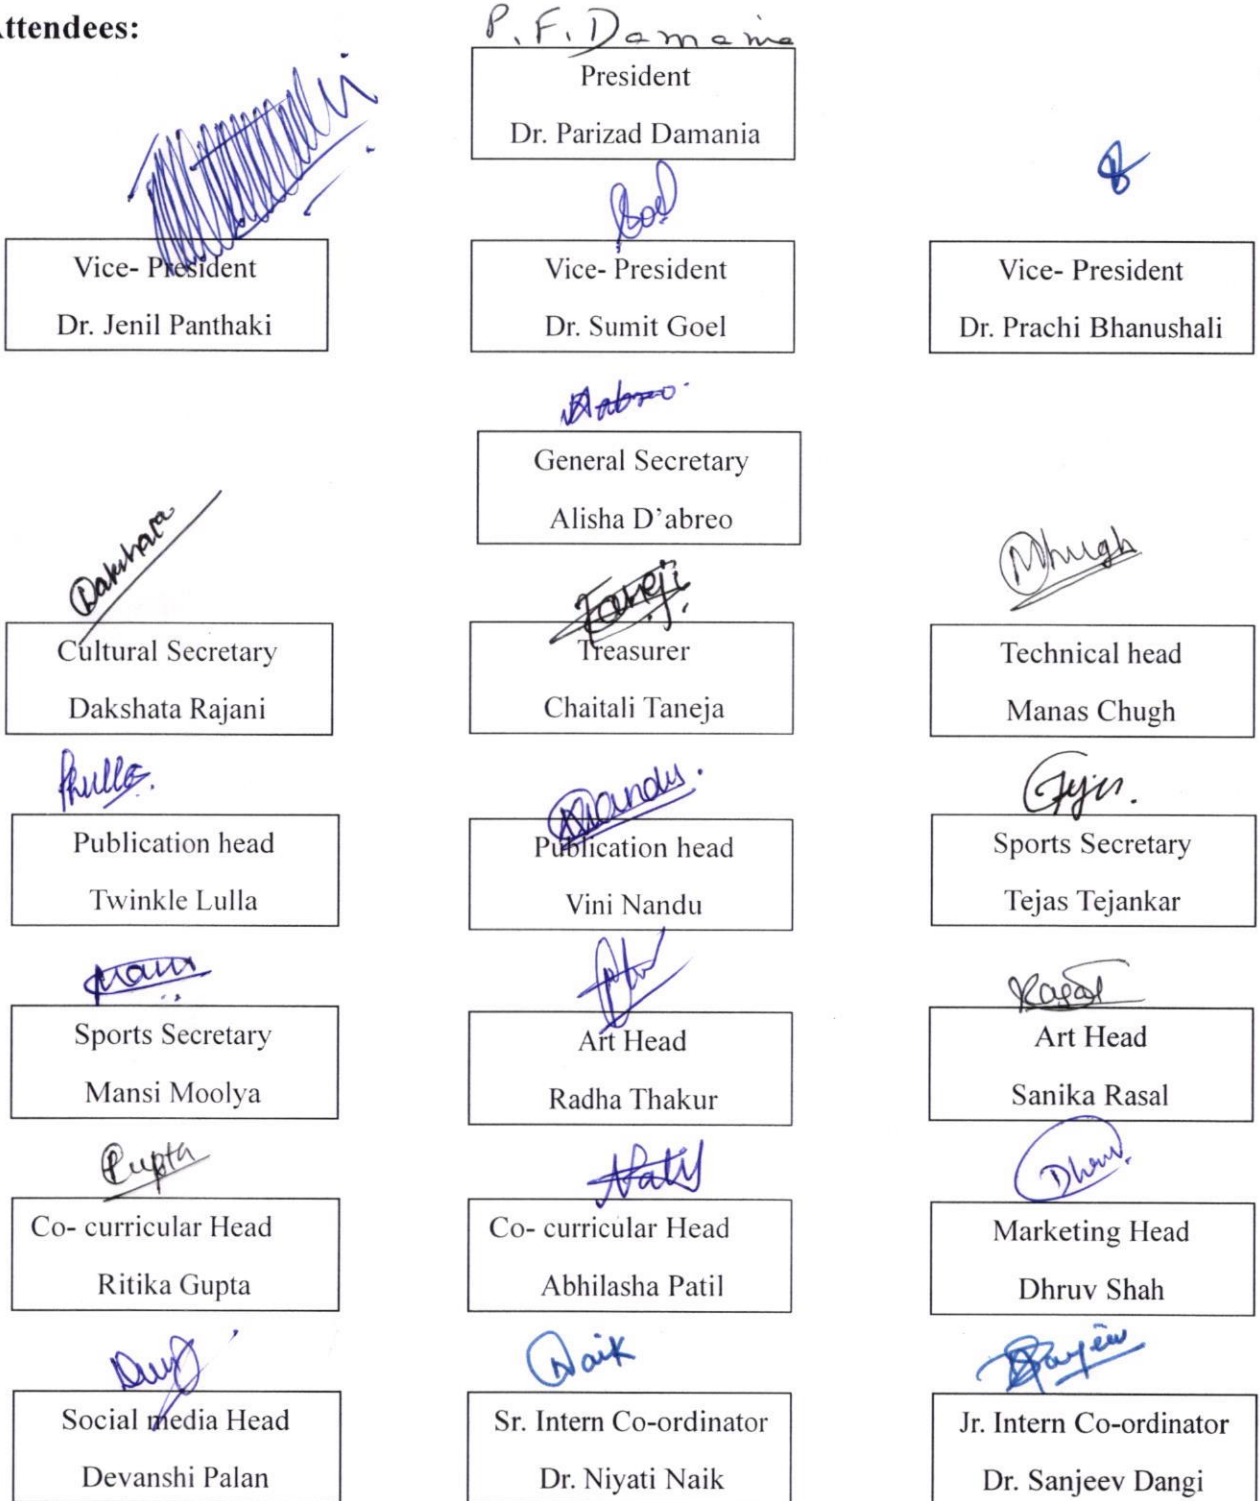 Attendees:
P. F. Damania
President
Dr. Parizad Damania
Goel
Vice- President
Dr. Jenil Panthaki
Vice- President
Dr. Sumit Goel
Vice- President
Dr. Prachi Bhanushali
General Secretary
Alisha D’abreo
Dakshata
MChugh
Cultural Secretary
Dakshata Rajani
Treasurer
Chaitali Taneja
Technical head
Manas Chugh
Publication head
Twinkle Lulla
Publication head
Vini Nandu
Sports Secretary
Tejas Tejankar
Rasal
Sports Secretary
Mansi Moolya
Art Head
Radha Thakur
Art Head
Sanika Rasal
Gupta
Patil
Dhruv
Co- curricular Head
Ritika Gupta
Co- curricular Head
Abhilasha Patil
Marketing Head
Dhruv Shah
Naik
Sanjeev
Social media Head
Devanshi Palan
Sr. Intern Co-ordinator
Dr. Niyati Naik
Jr. Intern Co-ordinator
Dr. Sanjeev Dangi